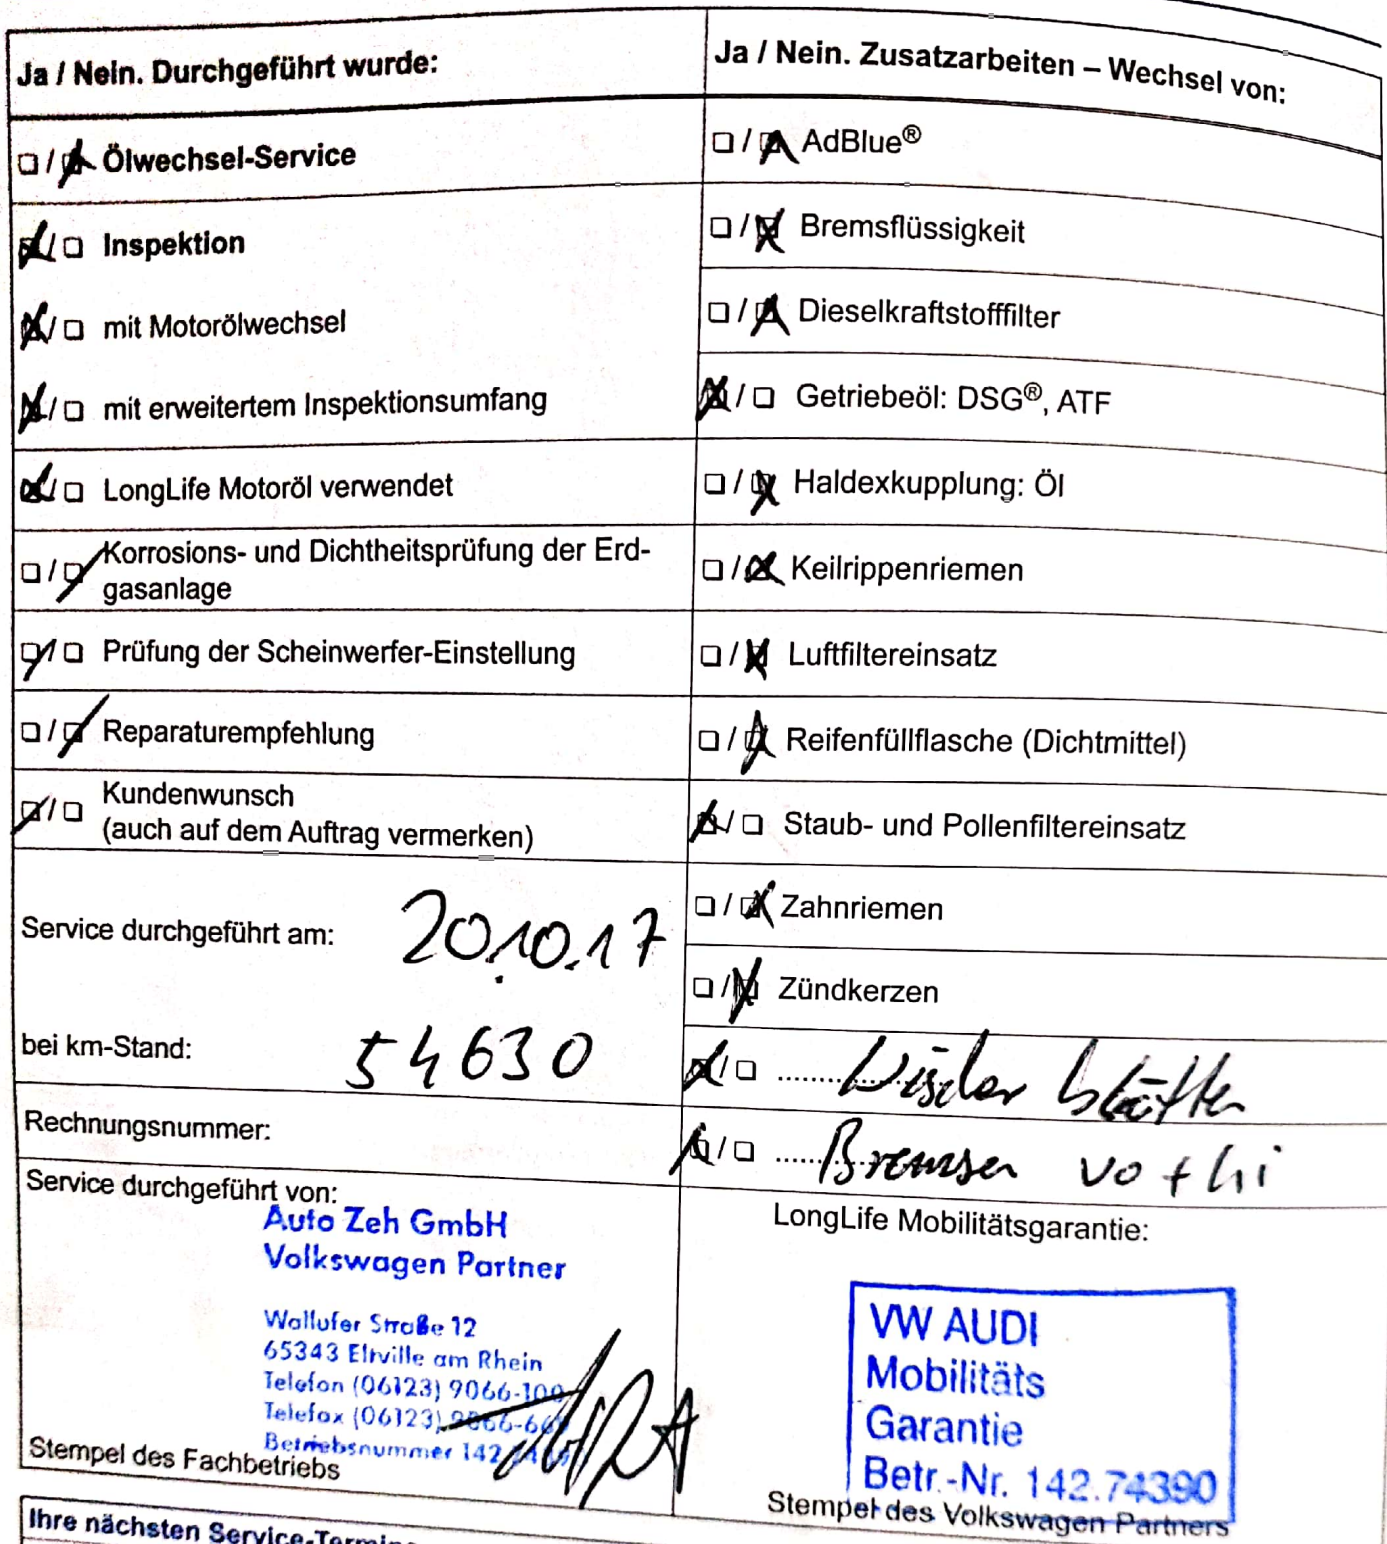 Ja / Nein. Durchgeführt wurde:
☐ / ☒ Ölwechsel-Service
☒ / ☐ Inspektion
☒ / ☐ mit Motorölwechsel
☒ / ☐ mit erweitertem Inspektionsumfang
☒ / ☐ LongLife Motoröl verwendet
☐ / ☒ Korrosions- und Dichtheitsprüfung der Erd-
gasanlage
☒ / ☐ Prüfung der Scheinwerfer-Einstellung
☐ / ☒ Reparaturempfehlung
☒ / ☐ Kundenwunsch
(auch auf dem Auftrag vermerken)
Service durchgeführt am: 20.10.17
bei km-Stand: 54630
Rechnungsnummer:
Service durchgeführt von:
Auto Zeh GmbH
Volkswagen Partner
Wallufer Straße 12
65343 Eltville am Rhein
Telefon (06123) 9066-100
Telefax (06123) 9066-66
Betriebsnummer 142
Stempel des Fachbetriebs
Ja / Nein. Zusatzarbeiten – Wechsel von:
☐ / ☒ AdBlue®
☐ / ☒ Bremsflüssigkeit
☐ / ☒ Dieselkraftstofffilter
☒ / ☐ Getriebeöl: DSG®, ATF
☐ / ☒ Haldexkupplung: Öl
☐ / ☒ Keilrippenriemen
☐ / ☒ Luftfiltereinsatz
☐ / ☒ Reifenfüllflasche (Dichtmittel)
☒ / ☐ Staub- und Pollenfiltereinsatz
☐ / ☒ Zahnriemen
☐ / ☒ Zündkerzen
☒ / ☐ Wischer blätter
☒ / ☐ Bremsen vo + hi
LongLife Mobilitätsgarantie:
VW AUDI
Mobilitäts
Garantie
Betr.-Nr. 142.74390
Stempel des Volkswagen Partners
Ihre nächsten Service-Termin